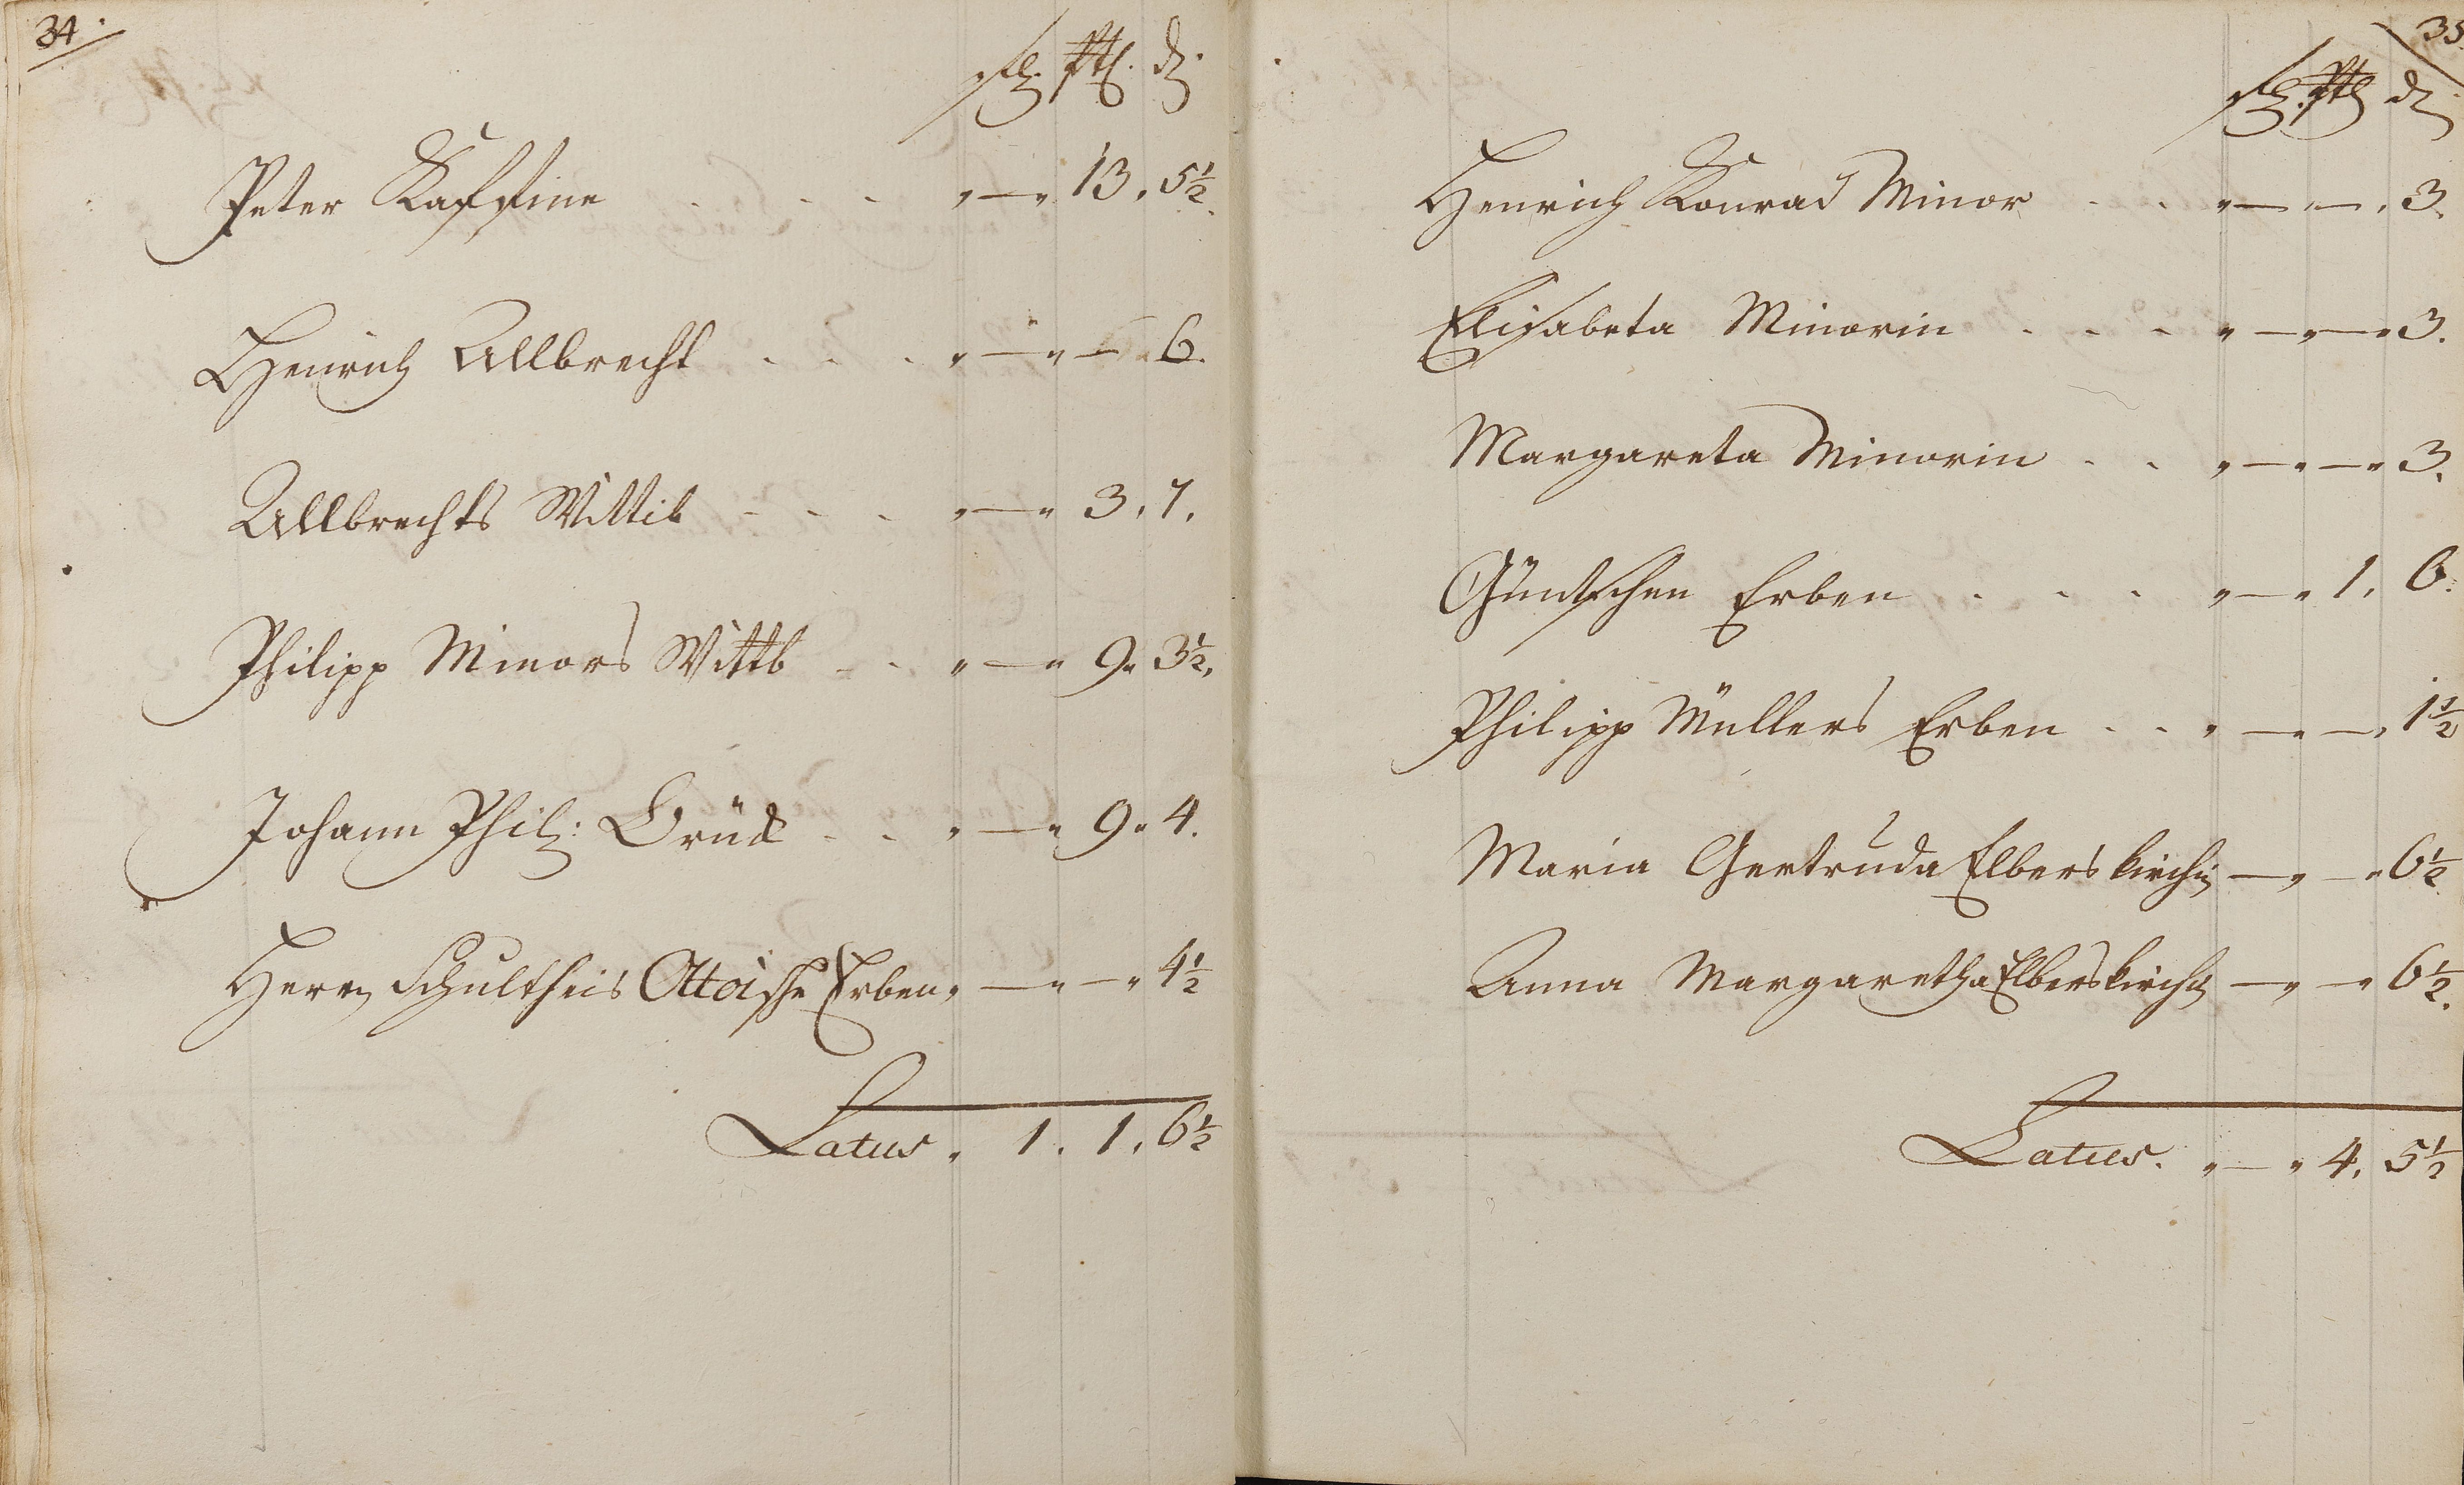 34.
fl. stl. d.
Peter Kaffine - - - " — " 13. 5½.
Henrich Ullbrecht - - - " — " — " 6.
Ullbrechts Wittib - - - " — " 3. 7.
Philipp Minors Wittb - - " — " 9. 3½.
Johann Phil: Brück - - " — " 9. 4.
Herrn Schultheis Ottoische Erben " — " — " 4½
Latus. 1. 1. 6½
35
fl. stl. d.
Henrich Konrad Minor - - " — " — " 3.
Elisabeta Minorin - - - " — " — " 3.
Margareta Minorin - - " — " — " 3.
Güntschen Erben - - - " — " 1. 6.
Philipp Müllers Erben - - " — " — " 1½
Maria Gertruda Elberskirchin — " — " 6½
Anna Margaretha Elberskirchin — " — " 6½.
Latus. " — " 4. 5½